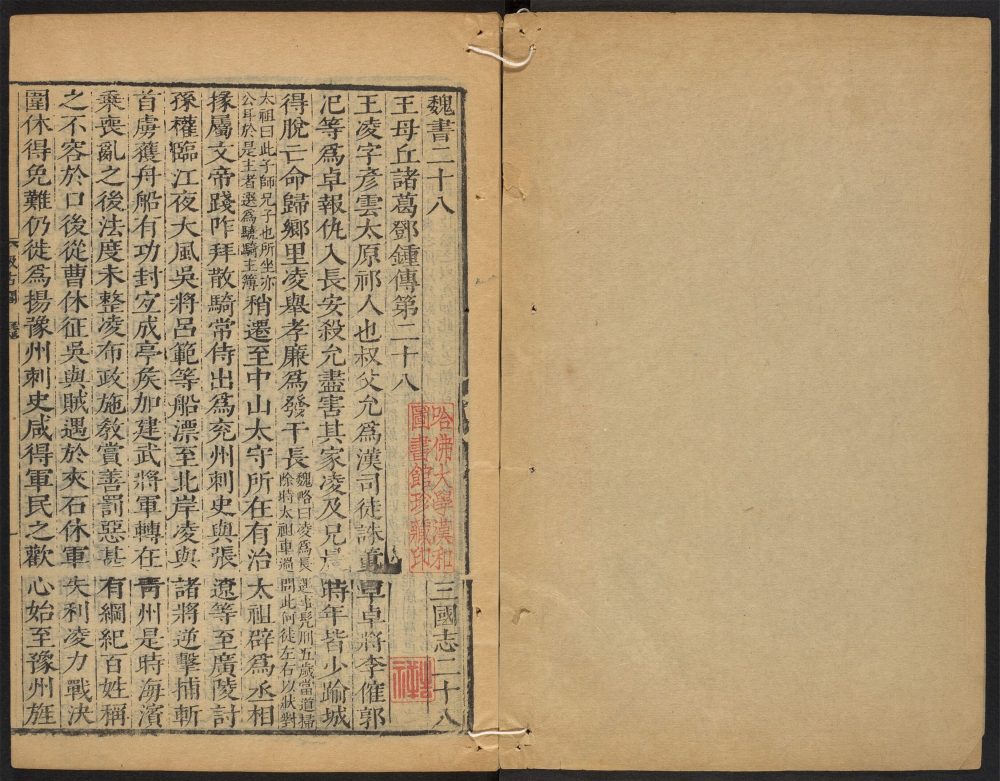 魏書二十八 三國志二十八
王毋丘諸葛鄧鍾傳第二十八
王凌字彥雲太原祁人也叔父允爲漢司徒誅董卓卓將李傕郭
汜等爲卓報仇入長安殺允盡害其家凌及兄晨時年皆少踰城
得脫亡命歸鄉里凌舉孝廉爲發干長
魏略曰凌爲長遇事髡刑五歲當道掃
除時太祖車過問此何徒左右以狀對
太祖曰此子師兄子也所坐亦
公耳於是主者選爲驍騎主簿
稍遷至中山太守所在有治太祖辟爲丞相
掾屬文帝踐阼拜散騎常侍出爲兗州刺史與張遼等至廣陵討
孫權臨江夜大風吳將呂範等船漂至北岸凌與諸將逆擊捕斬
首虜獲舟船有功封宜成亭侯加建武將軍轉在青州是時海濱
乘喪亂之後法度未整凌布政施教賞善罰惡甚有綱紀百姓稱
之不容於口後從曹休征吳與賊遇於夾石休軍失利凌力戰決
圍休得免難仍徙爲揚豫州刺史咸得軍民之歡心始至豫州旌
哈佛大學漢和
圖書館珍藏印